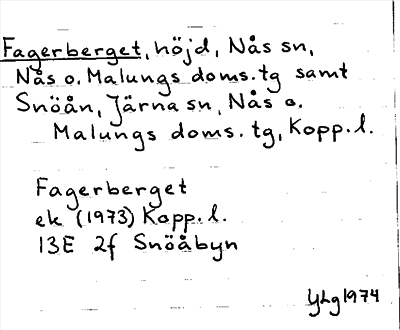 Fagerberget, höjd, Nås sn,
Nås o. Malungs doms.tg samt
Snöån, Järna sn, Nås o.
Malungs doms.tg, Kopp.l.
Fagerberget
ek (1973) Kopp.l.
13E 2f Snöåbyn
YLg 1974